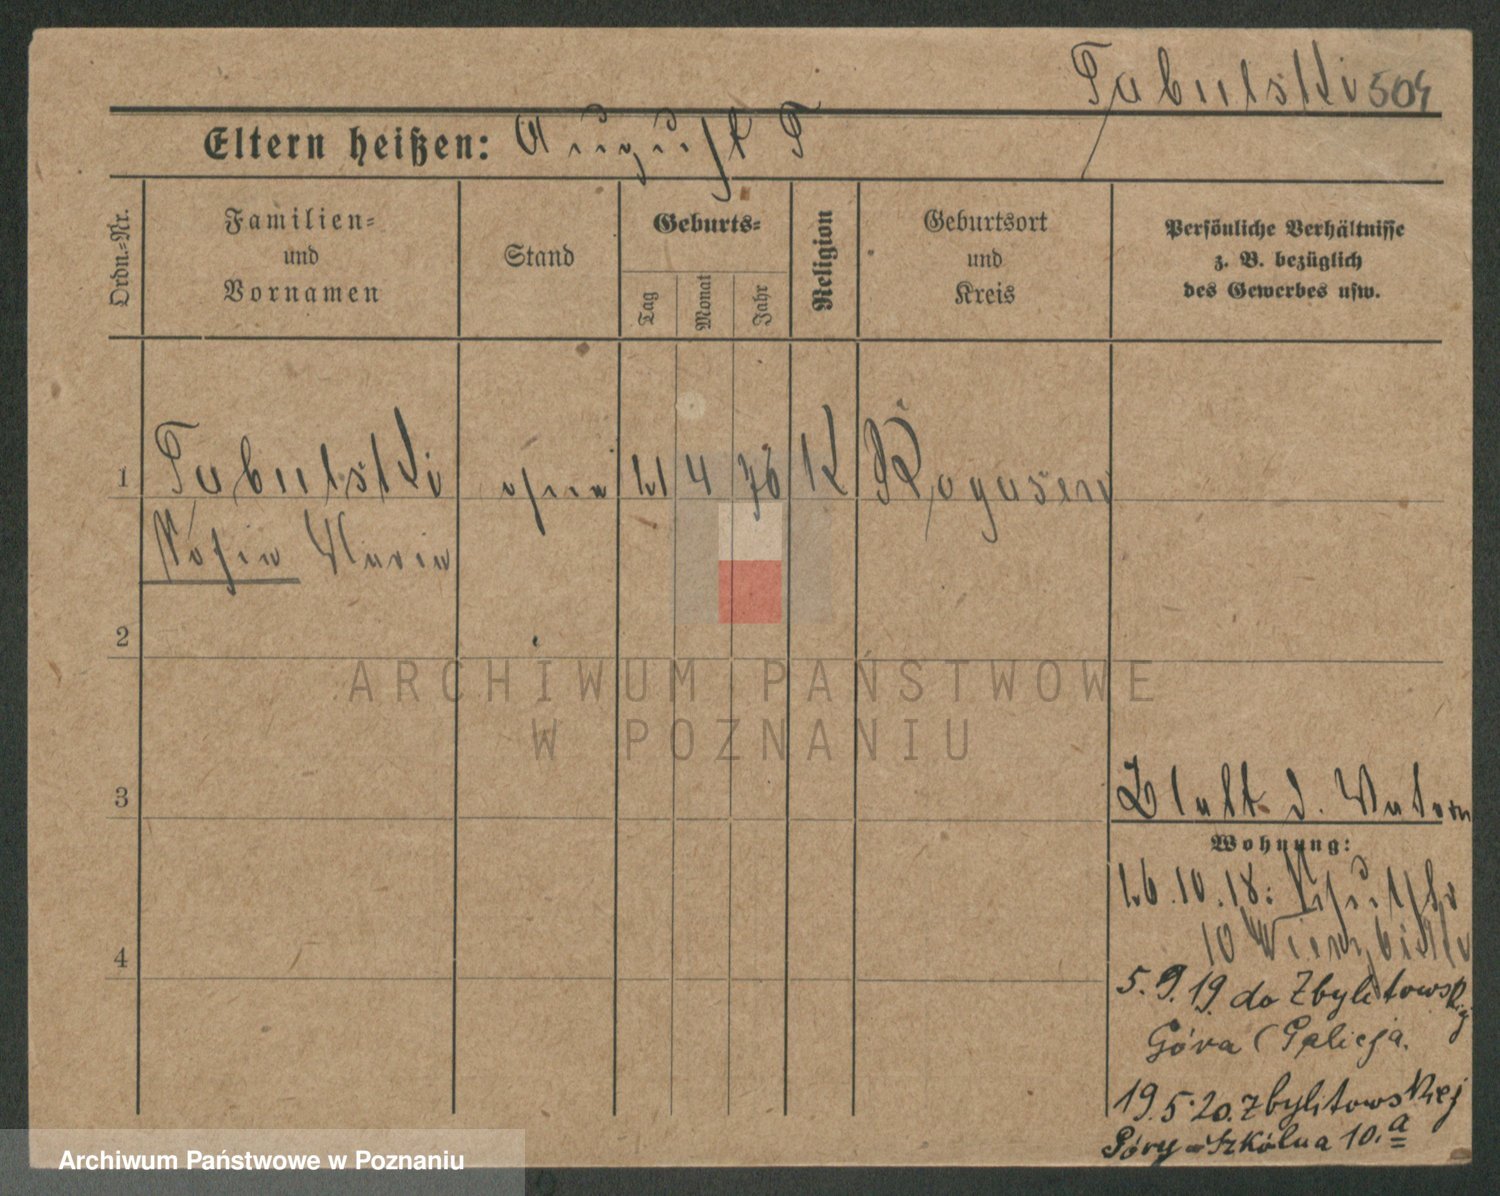 Tabulski 504
Eltern heißen: August T
Ordn.-Nr.
Familien-
und
Vornamen
Stand
Geburts-
Tag
Monat
Jahr
Religion
Geburtsort
und
Kreis
Persönliche Verhältnisse
z. B. bezüglich
des Gewerbes usw.
1 Tabulski ohne 4 76 K Rogasen
Maria
2
3
4
Wohnung:
26.10.18:
10
5.9.19. do Zbylitowskiej
Góra (Galicja.
19.5.20. Zbylitowskiej
Góry - Szkólna 10.a
ARCHIWUM PAŃSTWOWE
W POZNANIU
Archiwum Państwowe w Poznaniu